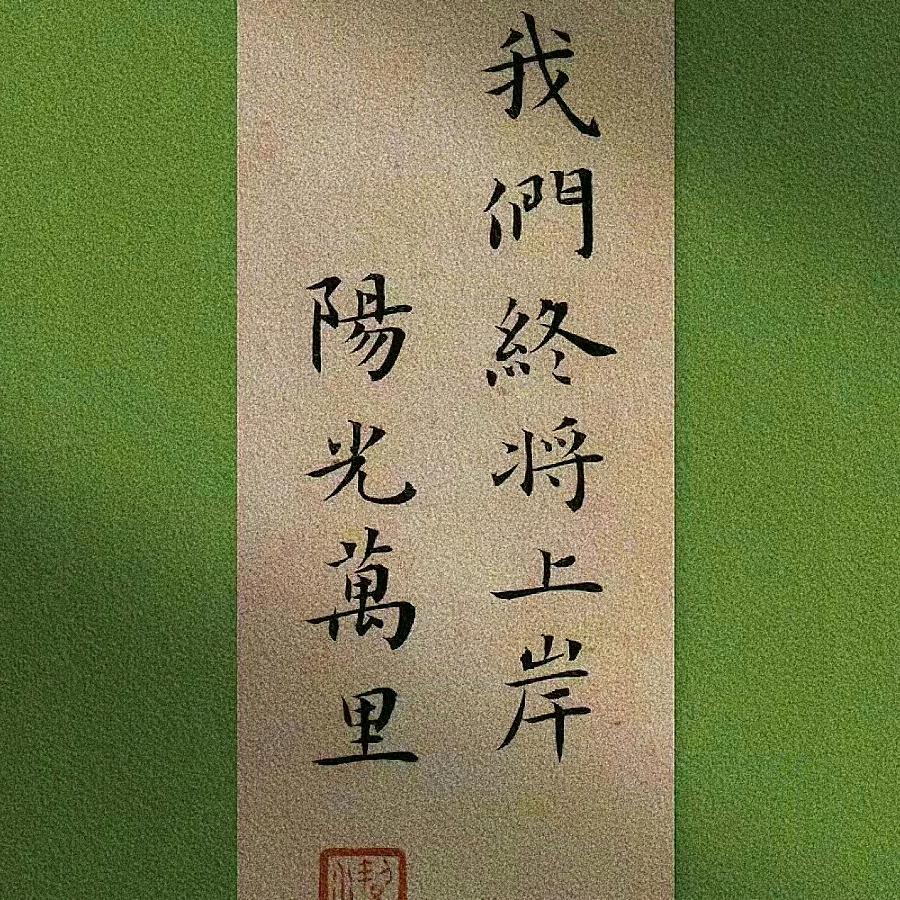 我們終将上岸
陽光萬里